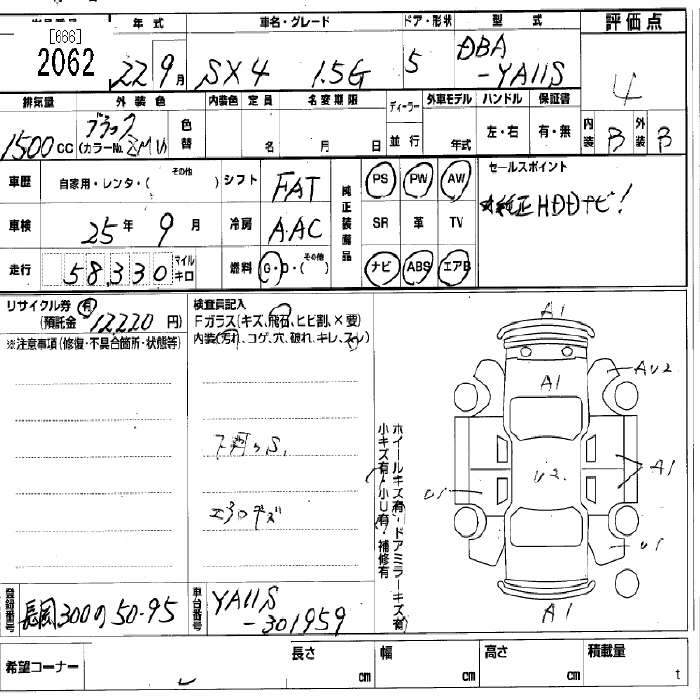 年式 車名・グレード ドア・形状 型式 評価点
[666]
2062 22 9月 SX4 1.5G 5 DBA-YA11S 4
排気量 外装色 内装色 定員 名変期限 ディーラー 外車モデル ハンドル 保証書
1500cc ブラック (カラーNo. ZMV) 色替 名 月 日 並行 年式 左・右 有・無 内装 B 外装 B
車歴 自家用・レンタ・( その他 ) シフト FAT 純正装備品 PS PW AW セールスポイント
車検 25年 9月 冷房 A.AC SR 革 TV 純正HDDナビ!
走行 58,330 マイル キロ 燃料 G・D・( その他 ) ナビ ABS エアB
リサイクル券 有
(預託金 12220 円)
検査員記入
Fガラス(キズ、飛石、ヒビ割、×要)
内装(汚れ、コゲ、穴、破れ、キレ、スレ)
※注意事項(修復・不具合箇所・状態等)
エアロキズ
ホイールキズ有・ドアミラーキズ有
小キズ有・小U有・補修有
A1
A1
AU2
U2
A1
U1
U1
A1
登録番号 長岡300の50-95 車台番号 YA11S-301959
希望コーナー 長さ cm 幅 cm 高さ cm 積載量 t